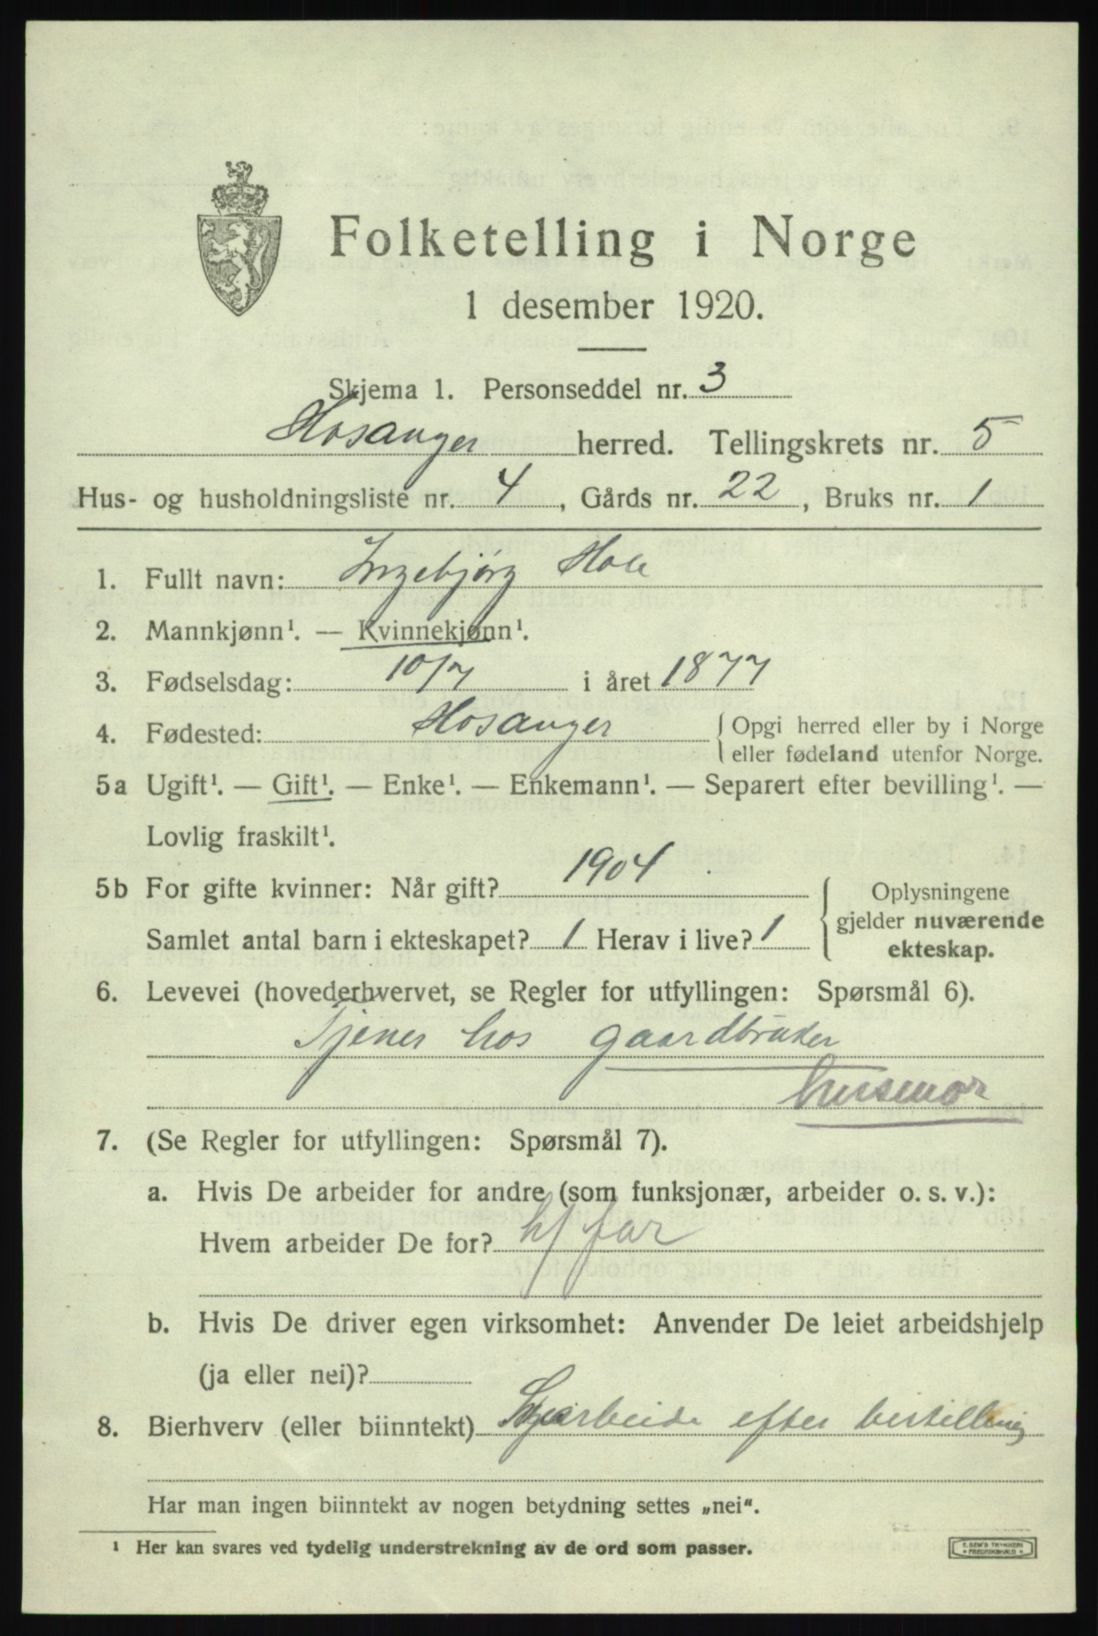 Folketelling i Norge
1 desember 1920.
Skjema 1. Personseddel nr. 3
Hosanger herred. Tellingskrets nr. 5
Hus- og husholdningsliste nr. 4, Gårds nr. 22, Bruks nr. 1
1. Fullt navn: Ingebjørg Hole
2. Mannkjønn¹. — Kvinnekjønn¹.
3. Fødselsdag: 10/7 i året 1877
4. Fødested: Hosanger { Opgi herred eller by i Norge
eller fødeland utenfor Norge.
5a Ugift¹. — Gift¹. — Enke¹. — Enkemann¹. — Separert efter bevilling¹. —
Lovlig fraskilt¹.
5b For gifte kvinner: Når gift? 1904
Samlet antal barn i ekteskapet? 1 Herav i live? 1
Oplysningene
gjelder nuværende
ekteskap.
6. Levevei (hovederhvervet, se Regler for utfyllingen: Spørsmål 6).
Tjener hos gaardbruker
husmor
7. (Se Regler for utfyllingen: Spørsmål 7).
a. Hvis De arbeider for andre (som funksjonær, arbeider o. s. v.):
Hvem arbeider De for? h/ far
b. Hvis De driver egen virksomhet: Anvender De leiet arbeidshjelp
(ja eller nei)?
8. Bierhverv (eller biinntekt) efter bestilling
Har man ingen biinntekt av nogen betydning settes „nei“.
¹ Her kan svares ved tydelig understrekning av de ord som passer.